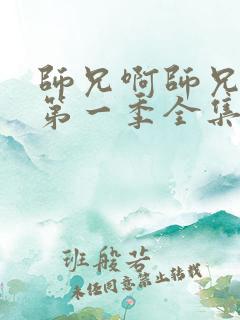 師兄啊師兄
第一季全集
班般若
未经同意禁止转载